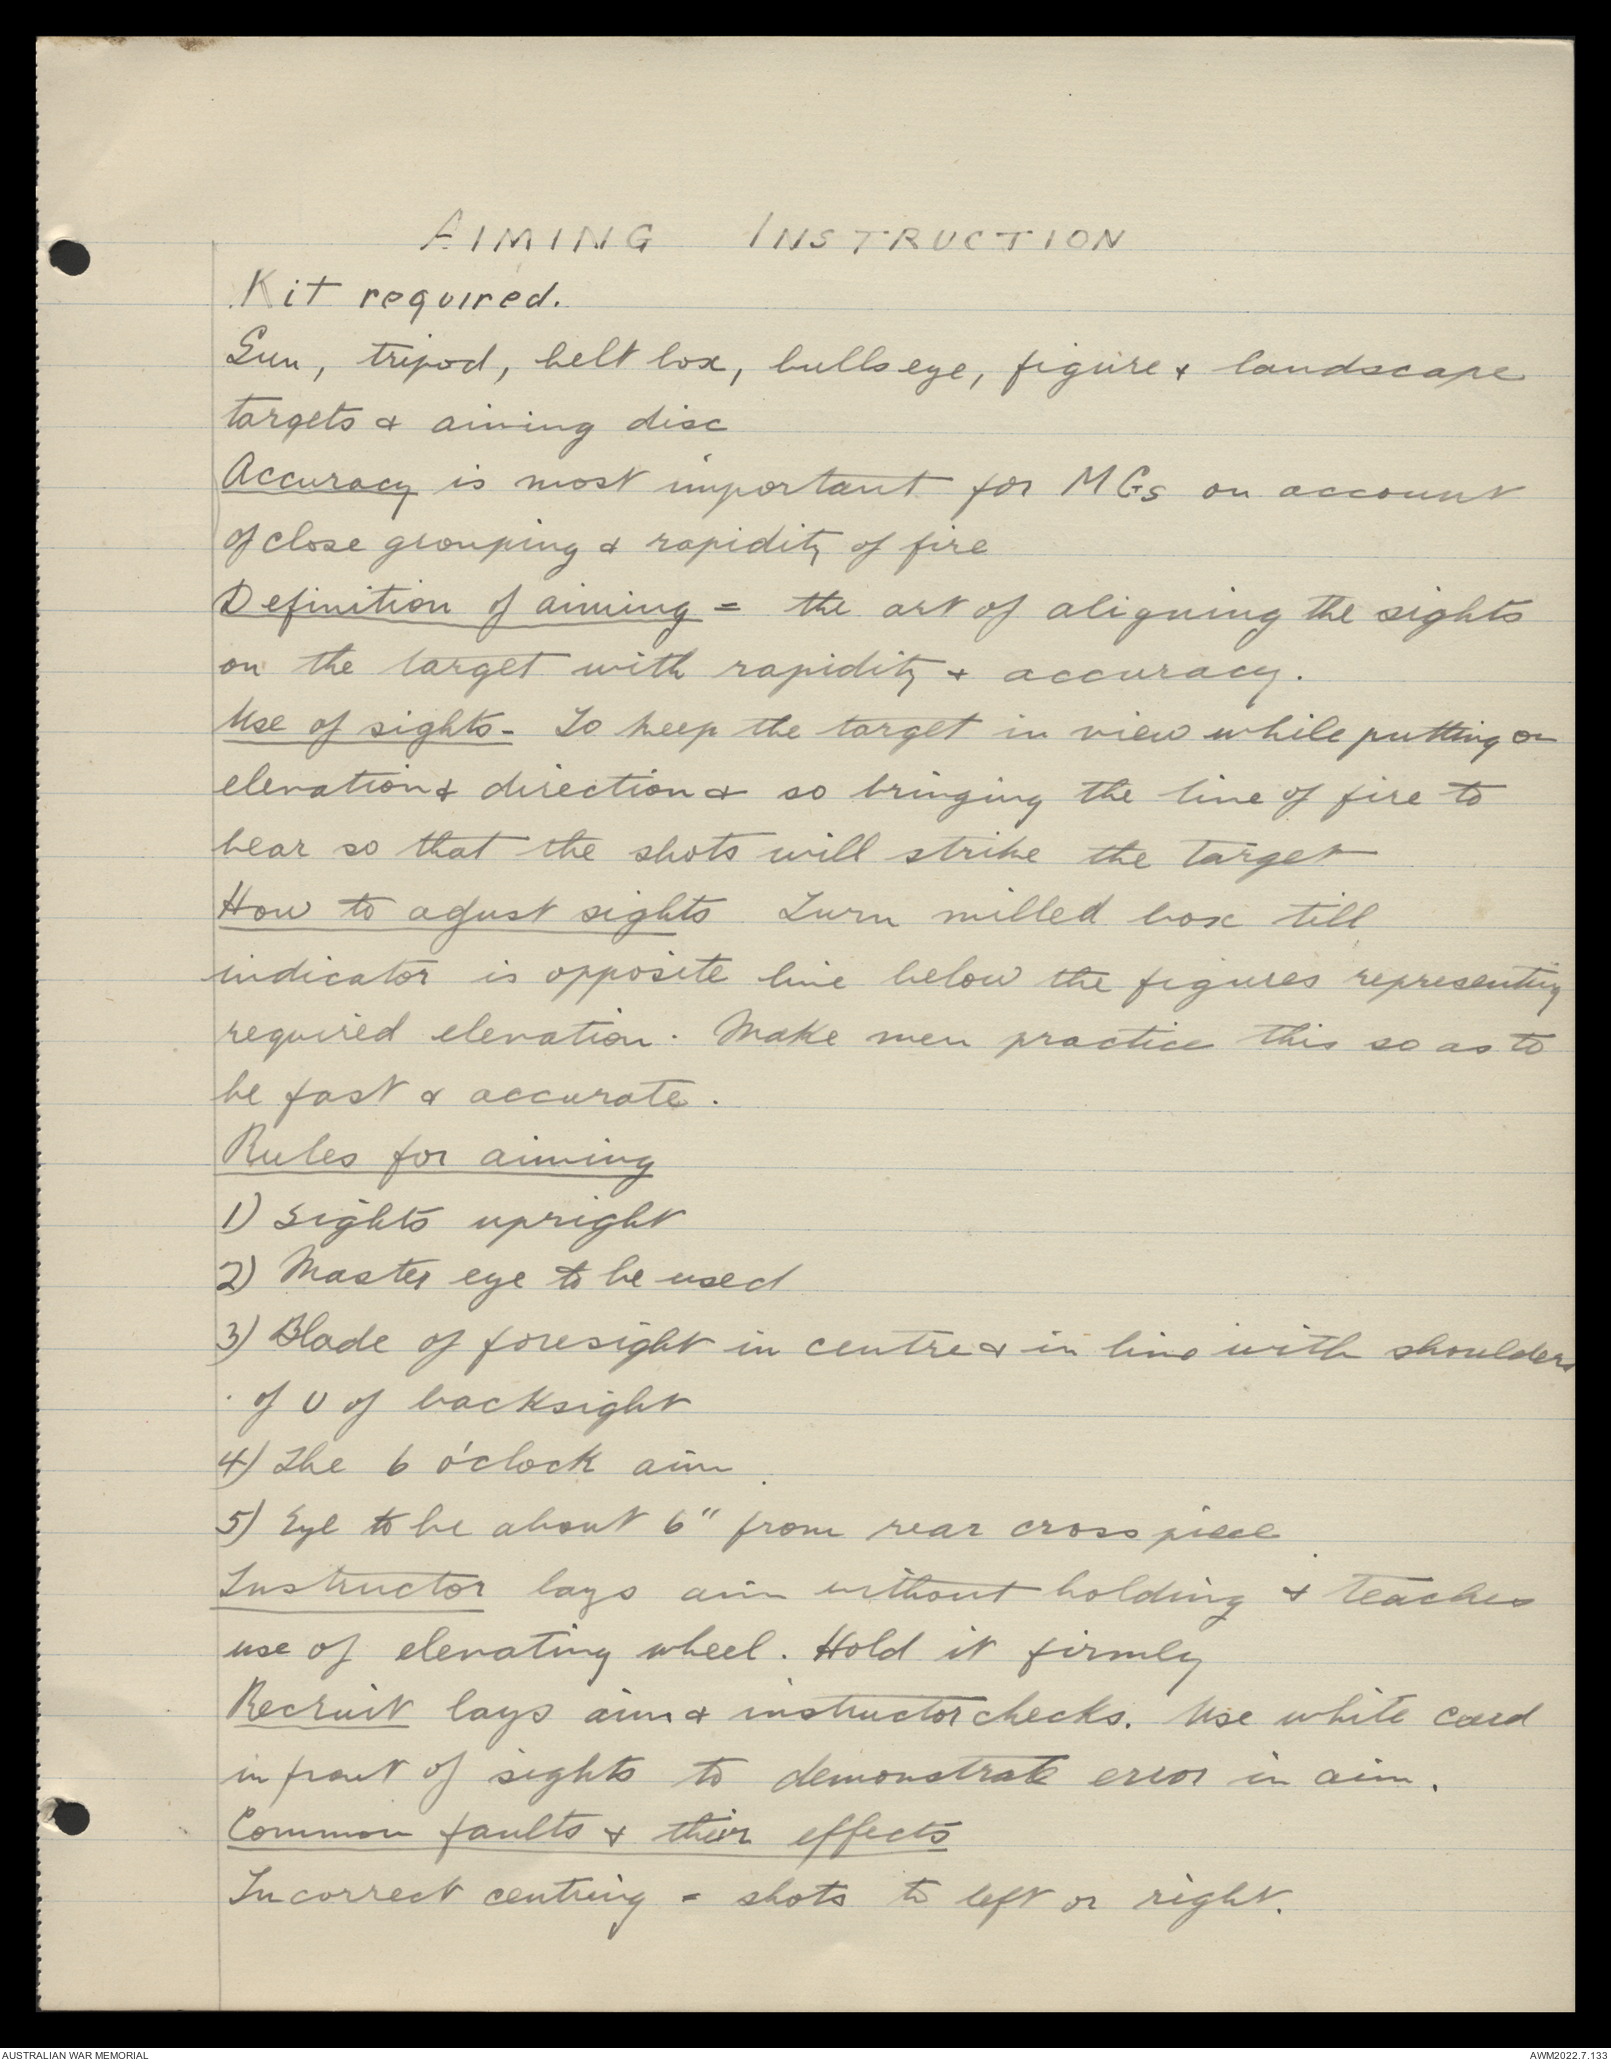 AIMING INSTRUCTION
Kit required.
Gun, tripod, belt box, bullseye, figure & landscape
targets & aiming disc
Accuracy is most important for MGs on account
of close grouping & rapidity of fire
Definition of aiming = the art of aligning the sights
on the target with rapidity & accuracy.
Use of sights - To keep the target in view while putting on
elevation & direction & so bringing the line of fire to
bear so that the shots will strike the target
How to agust sights Turn milled box till
indicator is opposite line below the figures representing
required elevation. Make men practice this so as to
be fast & accurate.
Rules for aiming
1) Sights upright
2) Master eye to be used
3) Blade of foresight in centre & in line with shoulders
of U of backsight
4) The 6 o'clock aim
5) Eye to be about 6" from rear cross piece
Instructor lays aim without holding & teaches
use of elevating wheel. Hold it firmly
Recruit lays aim & instructor checks. Use white card
in front of sights to demonstrate error in aim.
Common faults & their effects
Incorrect centring = shots to left or right.
AUSTRALIAN WAR MEMORIAL
AWM2022.7.133